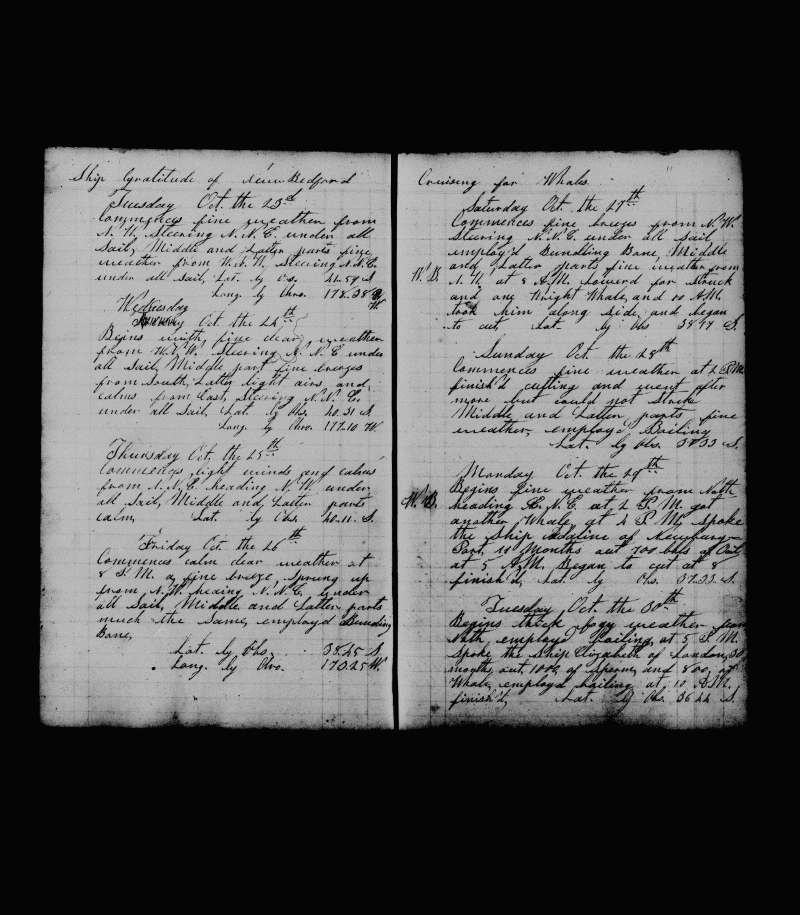 Ship Gratitude of New Bedford
Tuesday Oct. the 23rd
Commences fine weather from
N. W. Steering N. N. E. under all
Sail, Middle and Latter parts fine
weather from W. N. W. Steering N. N. E.
under all Sail, Lat. by Obs.
Long. by Chro. 178.38 W
Wednesday
Oct. the 24th
Begins with fine clear weather
from W. N. W. Steering N. N. E under
all Sail, Middle part fine breezes
from South, Latter light airs and
calms from East, Steering N. N. E.
under all Sail, Lat. by Obs. 40.31 S.
Long. by Chro. 177.10 W
Thursday Oct. the 25th
Commences light winds and calms
from N. N. E. heading N. W. under
all Sail, Middle and Latter parts
calm, Lat. by Obs. 40.11. S.
Friday Oct. the 26th
Commences calm clear weather at
8 P. M. a fine breeze, sprung up
from N. W. heading N. N. E, under
all Sail, Middle and Latter parts
much the same, employd Bundling
Bone,
Lat. by Obs. 38.45 S.
Long. by Chro. 173.25 W.
Cruising for Whales
Saturday Oct. the 27th
Commences fine breezes from N. W.
Steering N. N. E. under all Sail
employ'd Bundling Bone, Middle
and Latter parts fine weather from
N. W. at 8 A.M. Lowered for Struck
W. B.
and one Wright Whale, and 10 A.M.
took him along side, and began
to cut, Lat. by Obs S.
Sunday Oct. the 28th
Commences fine weather at 2 P.M.
finish'd cutting and went after
more but could not Strike
Middle and Latter parts fine
weather, employ'd Boiling
Lat. by Obs. S.
Monday Oct. the 29th
Begins fine weather from North
heading E. N. E. at 2 P. M. got
W. B.
another Whale, at 2 P M, Spoke
the Ship Adaline of Newbury-
Port, 10 Months out 700 bbls of Oil
at 5 A.M. Began to cut at 8
finish'd, Lat. by Obs. 37.33. S.
Tuesday Oct. the 30th
Begins thick fogy weather from
North, employ'd Boiling, at 5 P. M.
Spoke the Ship Elizabeth of London, 30
months out, 1000, of Sperm, and 800, of
Whale, employ'd boiling at 10 A.M.
finish'd, Lat. by Obs. 36 44 S.